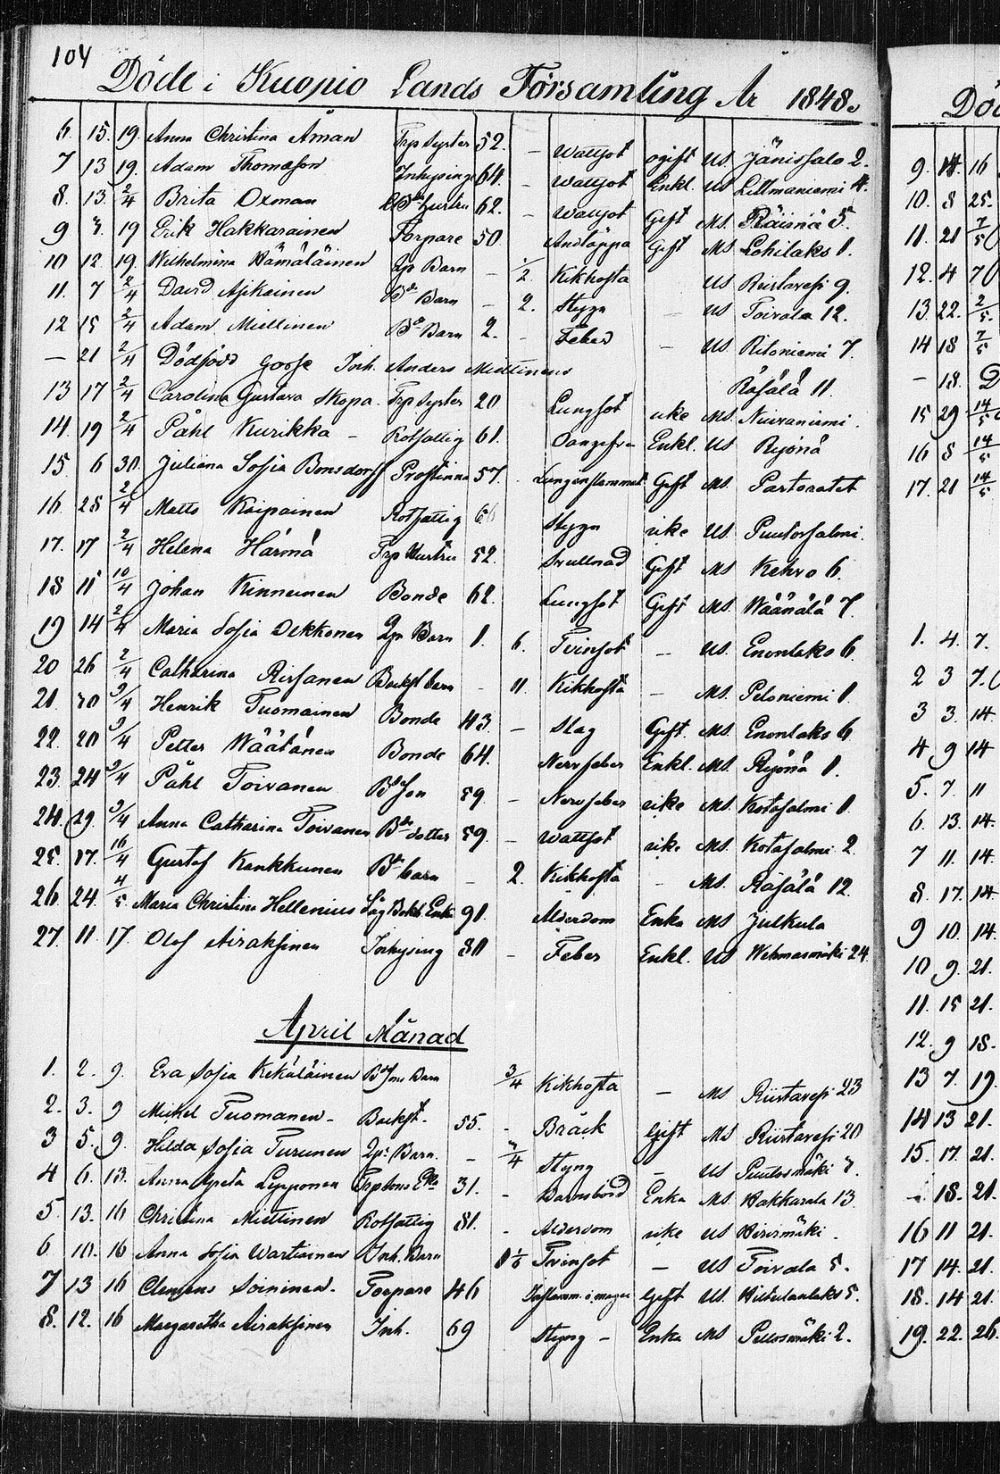 104
Döde i Kuopio Lands Församling År 1848.
6 15. 19 Anna Christina Åman Trp Syster 52. - Wattsot ogift US. Jänissalo 2.
7 13 19. Adam Thomasson Inhysing 64. - Wattsot Enkl. US Littmaniemi 4.
8. 13. 2/4 Brita Oxman hustru 62. - Wattsot Gift MS. Räisälä 5.
9 19 Erik Hakkarainen Torpare 50 Andtäppa Gift MS. Lehilaks 1.
10 12. 19. Wilhelmina Hämäläinen Barn - 1/2 Kikhosta US Riistavesi 9.
11. 7 2/4 David Asikainen Bd Barn - 2. Styng - US Toivala 12.
12 15 2/4 Adam Miettinen Bd Barn 2. - Feber - US. Ritoniemi 7.
- 21 2/4 Dödfödd gosse Inh. Anders Miettinens Räsälä 11
13 17 2/4 Carolina Gustava Skopa Trp Syster 20 Lungsot icke MS.
14. 19 2/4 Påhl Kurikka - Rotfattig 61. Enkl. US Ryönä
15. 6 30. Juliana Sofia Bonsdorff Prostinna 57. Gift MS. Pastoratet
16 28 2/4 Matts Kaipainen Rotfattig Styng icke US. Puutossalmi
17. 17 2/4 Helena Härmä Trp Hustru 52. Svullnad Gift MS Kehvo 6.
18 11 10/4 Johan Kinnunen Bonde 62. Lungsot Gift MS. Wäänälä 7.
19 14 2/4 Maria Sofia Okkonen Barn 1. 6. Tvinsot - US. Enonlaks 6
20 26 2/4 Catharina Rissanen - 11. Kikhosta - MS. Peloniemi 1
21. 20 9/4 Henrik Tuomainen Bonde 43 - Slag Gift MS. Enonlaks 6
22. 20 9/4 Petter Wäätänen Bonde 64. Nervfeber Enkl. MS. Ryönä 1.
23. 24 9/4 Påhl Toivanen Bd Son 59. - Nervfeber icke MS. Kotasalmi 1
24. 29. 9/4 Anna Catharina Toivanen Bd dotter 59. - Wattsot icke MS. Kotasalmi 2
25. 17. 16/4 Gustaf Kankkunen Bd barn - 2. Kikhosta - MS. Räsälä 12.
26. 24. 4/5 Maria Christina Hellenius Enka 91. Ålderdom Enka MS Julkula
27. 11 17. Olof Airaksinen Inhysing 80 - Feber Enkl. US Wehmasmäki 24
April Månad
1. 2. 9. Eva Sofia Kekäläinen Barn 3/4 Kikhosta - MS Riistavesi 23
2. 3. 9 Mickel Tuomanen - 55. - Bråck Gift MS. Riistavesi 20
3 5. 9. Hilda Sofia Turunen Barn. - Styng - US Puutosmäki 7.
4 6. 13. Anna Greta Lypponen 31. - Barnsbörd Enka MS. Hakkarala 13
5. 13. 16 Christina Miettinen Rotfattig 81. - Ålderdom icke US Hirvimäki.
6 10. 16 Anna Sofia Wartiainen Inh. Barn Tvinsot - US Toivala 5.
7 13 16 Clemens Soininen. Torpare 46 Inflamm. i magen Gift US.
8. 12. 16 Margaretha Airaksinen Inh. 69 Styng - Enka MS Pellosmäki 2.
Dö
9. 14. 16
10. 8 25.
11. 21 7/5
12. 4 7
13. 22. 2/5.
14 18 7/5
- 18. D
15 29 14/5
16 8 14/5
17. 21 14/5
1. 4. 7.
2 3 7.
3 3. 14.
4 9 14
5. 7. 11
6. 13. 14.
7 11. 14.
8. 17. 14.
9 10. 14.
10 9. 21.
11. 15 21.
12. 9 18.
13 7. 19.
14 13 21.
15. 17. 21.
- 18. 21.
16 11 21.
17 14. 21.
18. 14 21.
19. 22. 26.